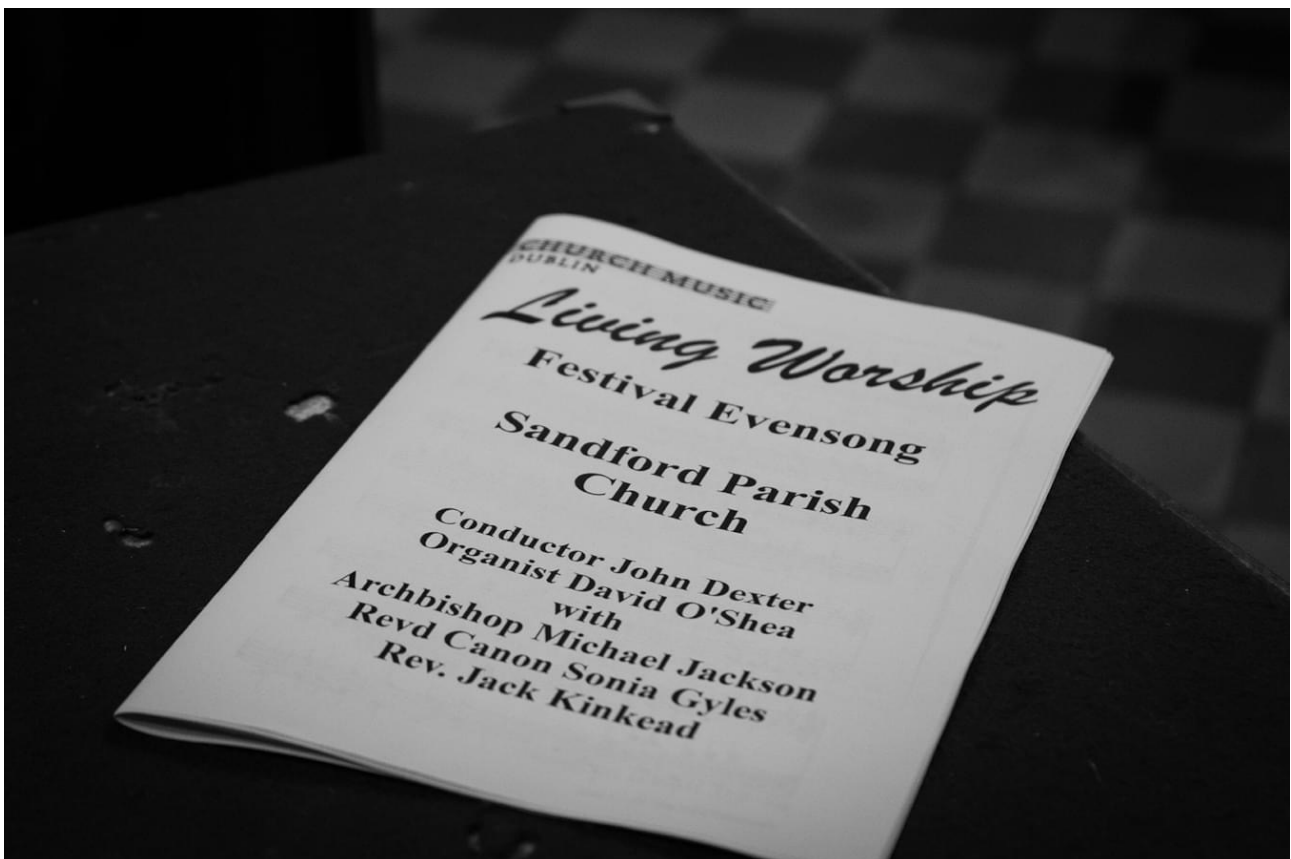 CHURCH MUSIC
DUBLIN
Living Worship
Festival Evensong
Sandford Parish
Church
Conductor John Dexter
Organist David O'Shea
with
Archbishop Michael Jackson
Revd Canon Sonia Gyles
Rev. Jack Kinkead